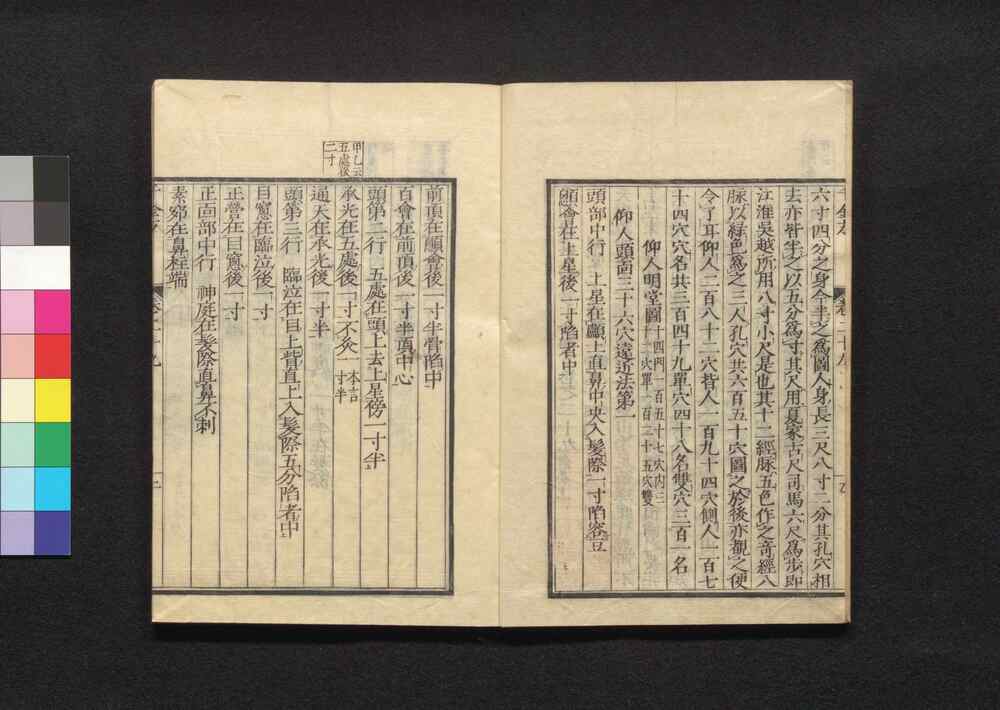 六寸四分之身今半之爲圖人身長三尺八寸二分其孔穴相
去亦皆半之以五分爲寸其尺用夏家古尺司馬六尺爲步即
江淮吳越所用八寸小尺是也其十二經脉五色作之奇經八
脉以綠色爲之三人孔穴共六百五十穴圖之於後亦覩之便
令了耳仰人二百八十二穴背人一百九十四穴側人一百七
十四穴穴名共三百四十九單穴四十八名雙穴三百一名
仰人明堂圖十四門一百五十七穴内三
十二穴單一百二十五穴雙
仰人頭面三十六穴遠近法第一
頭部中行 上星在顱上直鼻中央入髮際一寸陷容豆
顖會在上星後一寸陷者中
甲乙云
五處後
二寸
前頂在顖會後一寸半骨陷中
百會在前頂後一寸半頂中心
頭第二行 五處在頭上去上星傍一寸半
承光在五處後一寸不灸一本言
一寸半
通天在承光後一寸半
頭第三行 臨泣在目上眥直上入髮際五分陷者中
目窻在臨泣後一寸
正營在目窻後一寸
正面部中行 神庭在髮際直鼻不刺
素窌在鼻柱端